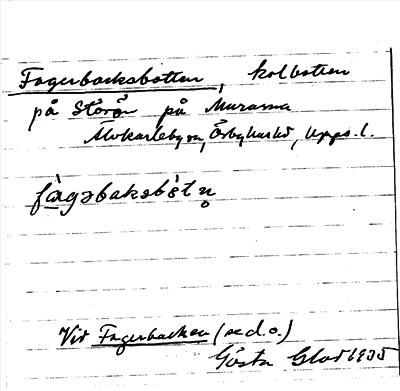 Fagerbacksbotten, kolbotten
på Storön på Murarna
Älvkarleby sn, Örbyhus hd, Upps. l.
fàgərbaksbòtn̥
Vid Fagerbacken (se d.o.)
Gösta Glad 1935